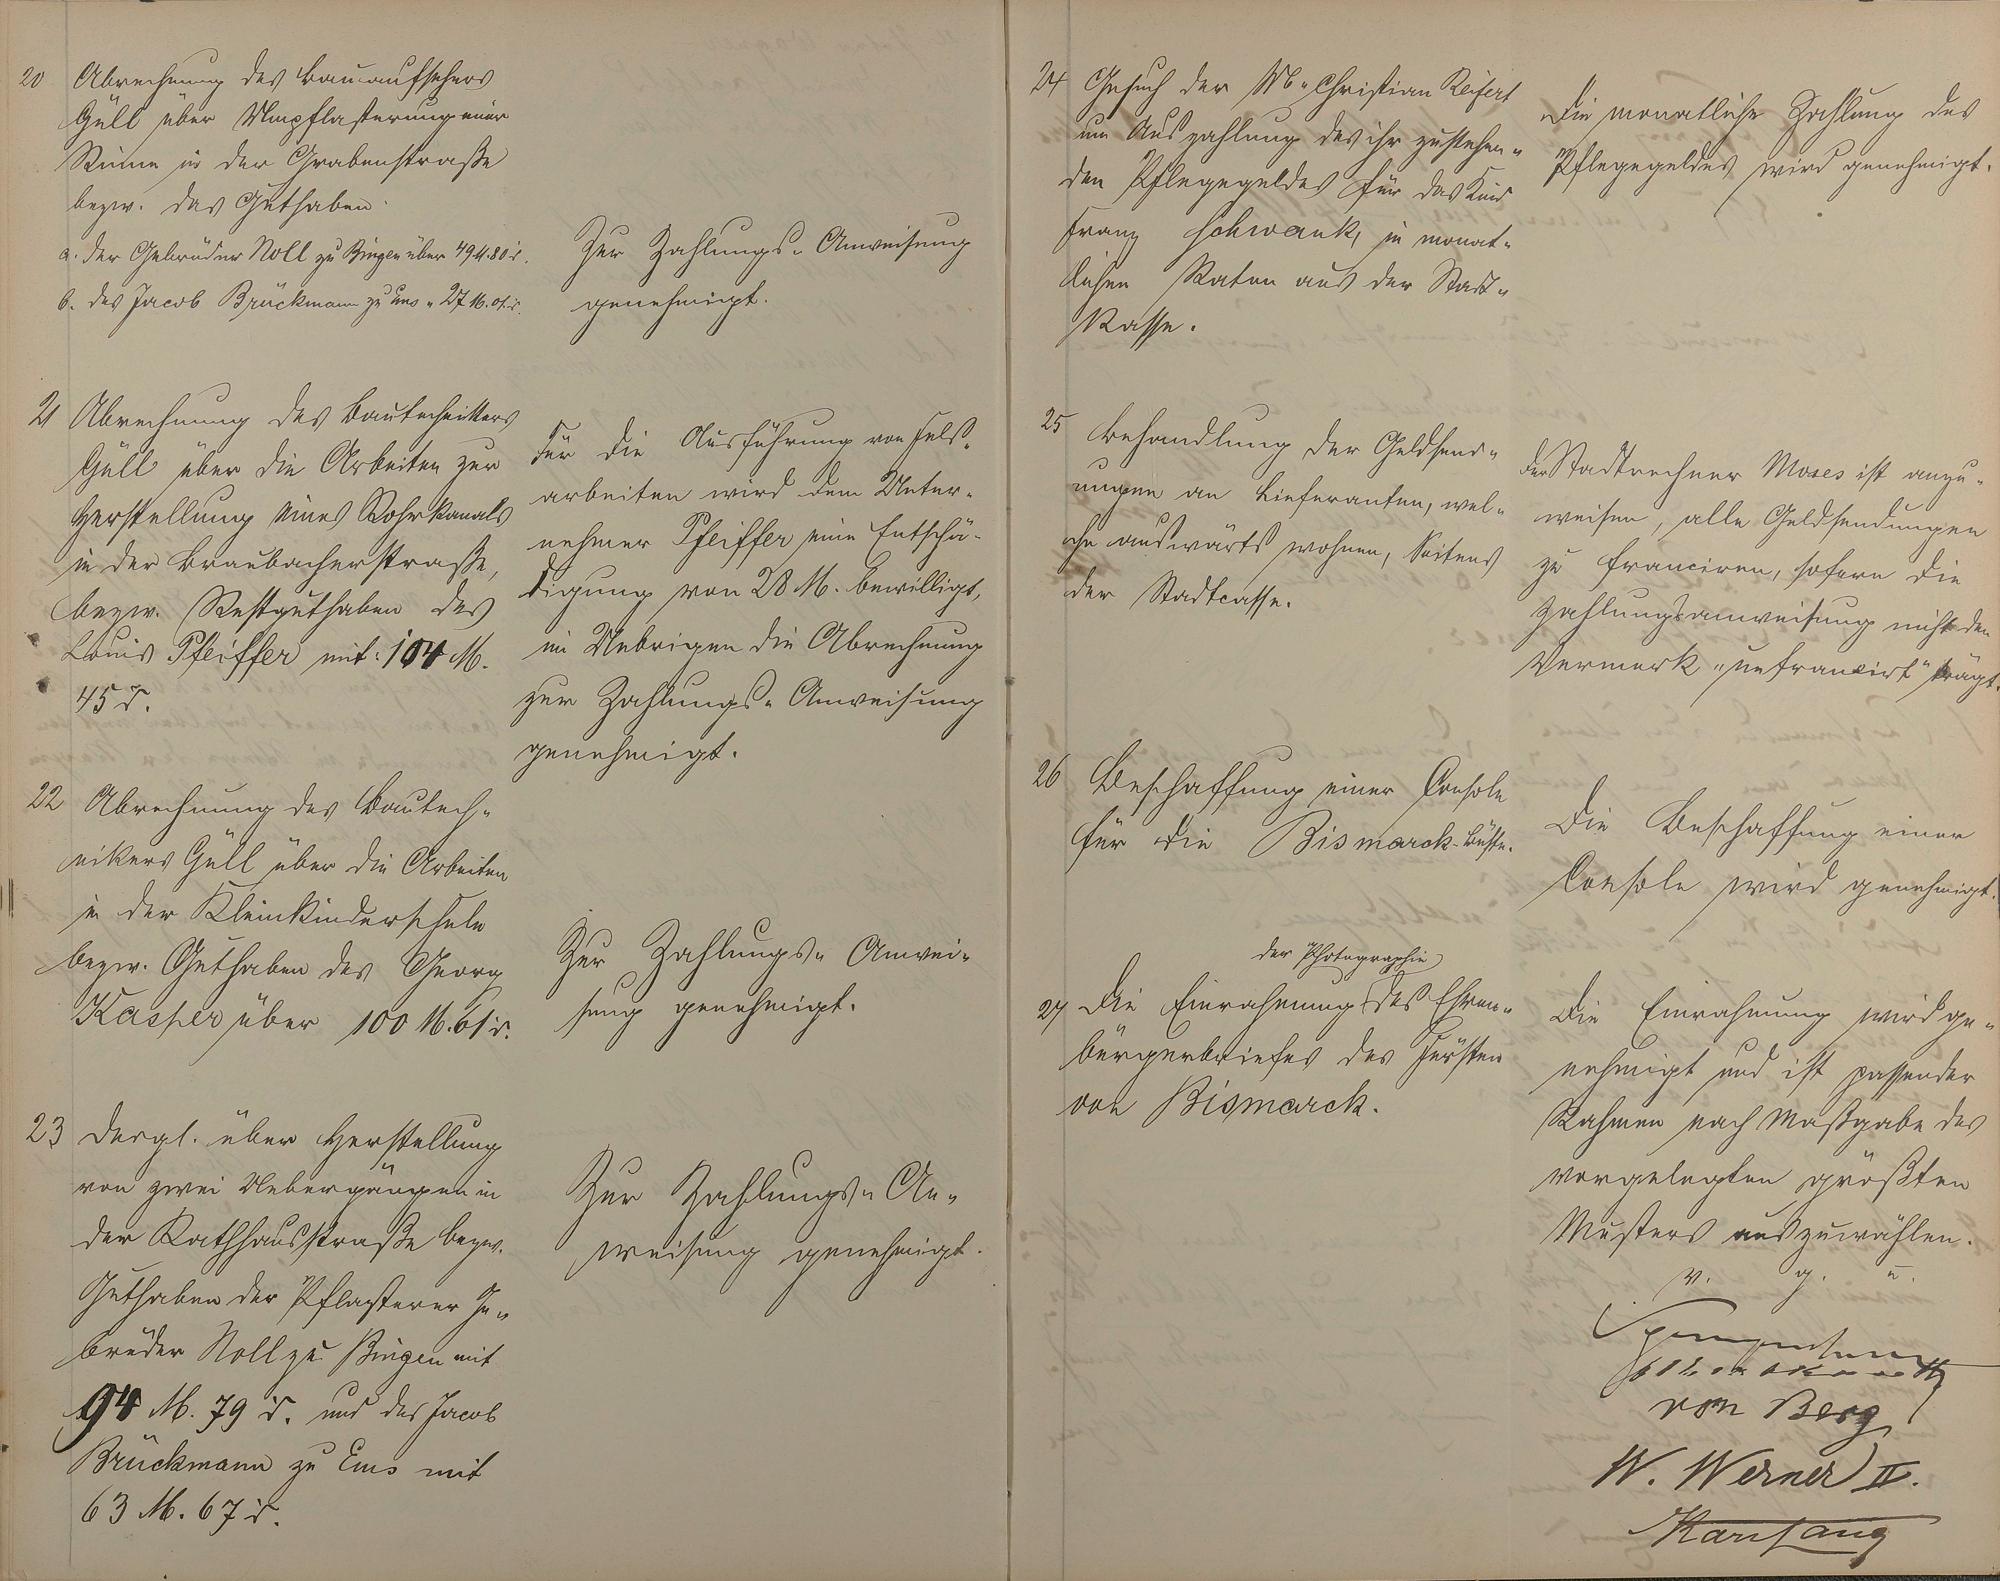 20 Abrechnung des Bauaufsehers
Güll über Umpflasterung einer
Rinne in der Grabenstraße
bezw. das Guthaben
a. der Gebrüder Noll zu Bingen über 49 M. 80 d.
b. des Jacob Brückmann zu Ems " 27 M. 01 d.
Zur Zahlungs-Anweisung
genehmigt.
21 Abrechnung des Bautechnikers
Güll über die Arbeiten zur
Herstellung eines Rohrkanals
in der Braubacherstraße,
bezw. Restguthaben des
Louis Pfeiffer mit: 104 M.
45 d.
Für die Ausführung von Fels-
arbeiten wird dem Unter-
nehmer Pfeiffer eine Entschä-
digung von 28 M. bewilligt,
im Uebrigen die Abrechnung
zur Zahlungs-Anweisung
genehmigt.
22 Abrechnung des Bautech-
nikers Güll über die Arbeiten
in der Kleinkinderschule
bezw. Guthaben des Georg
Kasper über 100 M. 61 d.
Zur Zahlungs-Anwei-
sung genehmigt.
23 Dergl. über Herstellung
von zwei Uebergängen in
der Rathhausstraße bezw.
Guthaben der Pflasterer Ge-
brüder Noll zu Bingen mit
94 M. 79 d. und des Jacob
Brückmann zu Ems mit
63 M. 67 d.
Zur Zahlungs-An-
weisung genehmigt.
24 Gesuch der W. Christian Reifert
um Auszahlung des ihr zustehen-
den Pflegegeldes für das Kind
Franz Schwank, in monat-
lichen Raten aus der Stadt-
Kasse.
Die monatliche Zahlung des
Pflegegeldes wird genehmigt.
25 Behandlung der Geldsend-
ungen an Lieferanten, wel-
che auswärts wohnen, Seitens
der Stadtcasse.
Der Stadtrechner Moses ist anzu-
weisen, alle Geldsendungen
zu franciren, sofern die
Zahlungsanweisung nicht den
Vermerk "unfrancirt" trägt.
26 Beschaffung einer Console
für die Bismarck-Büste.
Die Beschaffung einer
Console wird genehmigt.
der Photographie
27 Die Einrahmung des Ehren-
bürgerbriefes des Fürsten
von Bismarck.
Die Einrahmung wird ge-
nehmigt und ist passender
Rahmen nach Maßgabe des
vorgelegten größten
Musters auszuwählen.
v. g. u.
von Berg
W. Werner II.